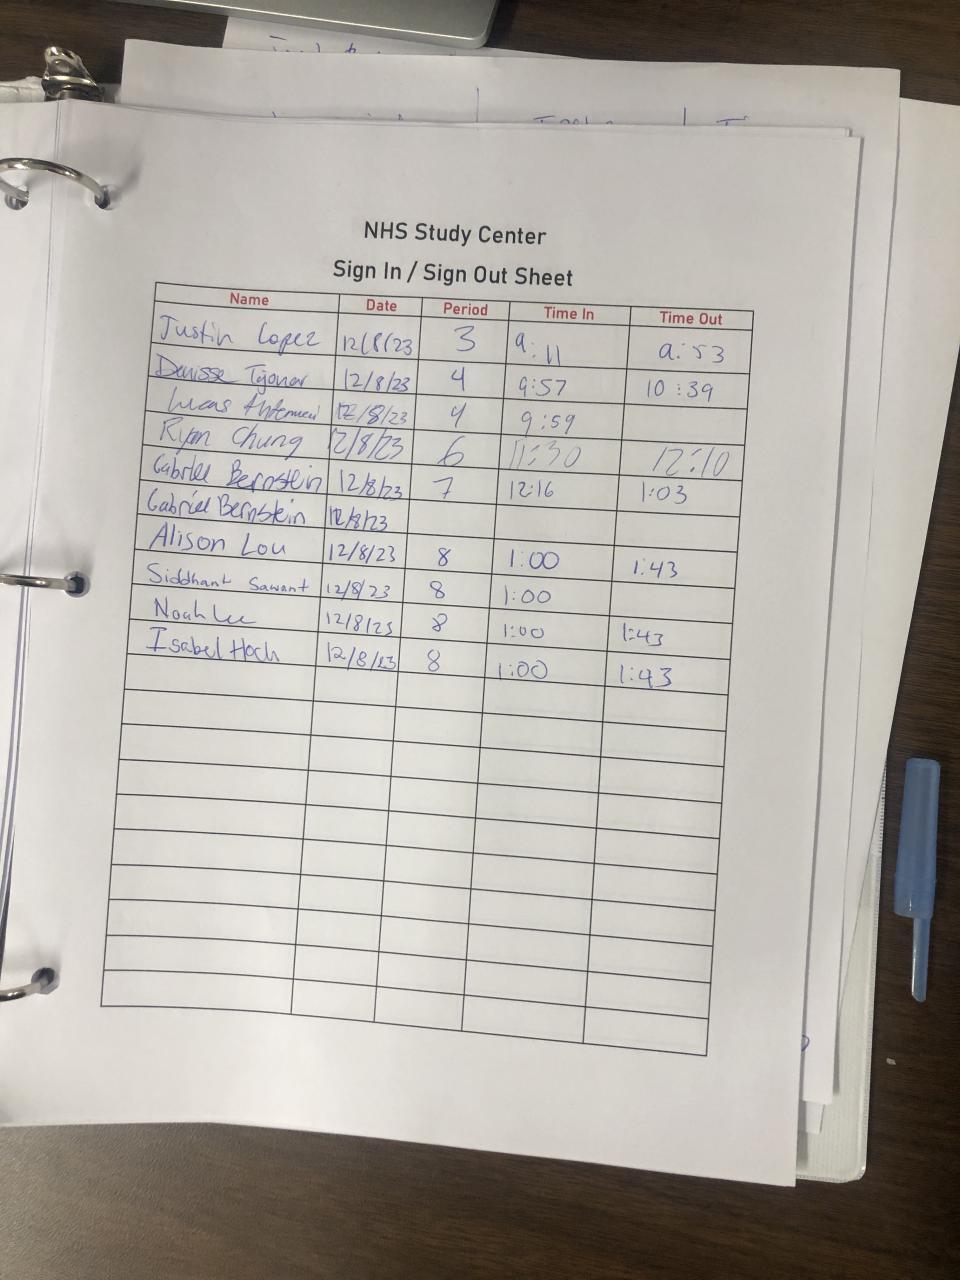 NHS Study Center
Sign In / Sign Out Sheet
Name Date Period Time In Time Out
Justin Lopez 12/8/23 3 9:11 9:53
Denisse 12/8/23 4 9:57 10:39
Lucas 12/8/23 4 9:59
Ryan Chung 12/8/23 6 11:30 12:10
Gabriel Bernstein 12/8/23 7 12:16 1:03
Gabriel Bernstein 12/8/23
Alison Lou 12/8/23 8 1:00 1:43
Siddhant Sawant 12/8/23 8 1:00
Noah Lee 12/8/23 8 1:00 1:43
Isabel Hoch 12/8/23 8 1:00 1:43